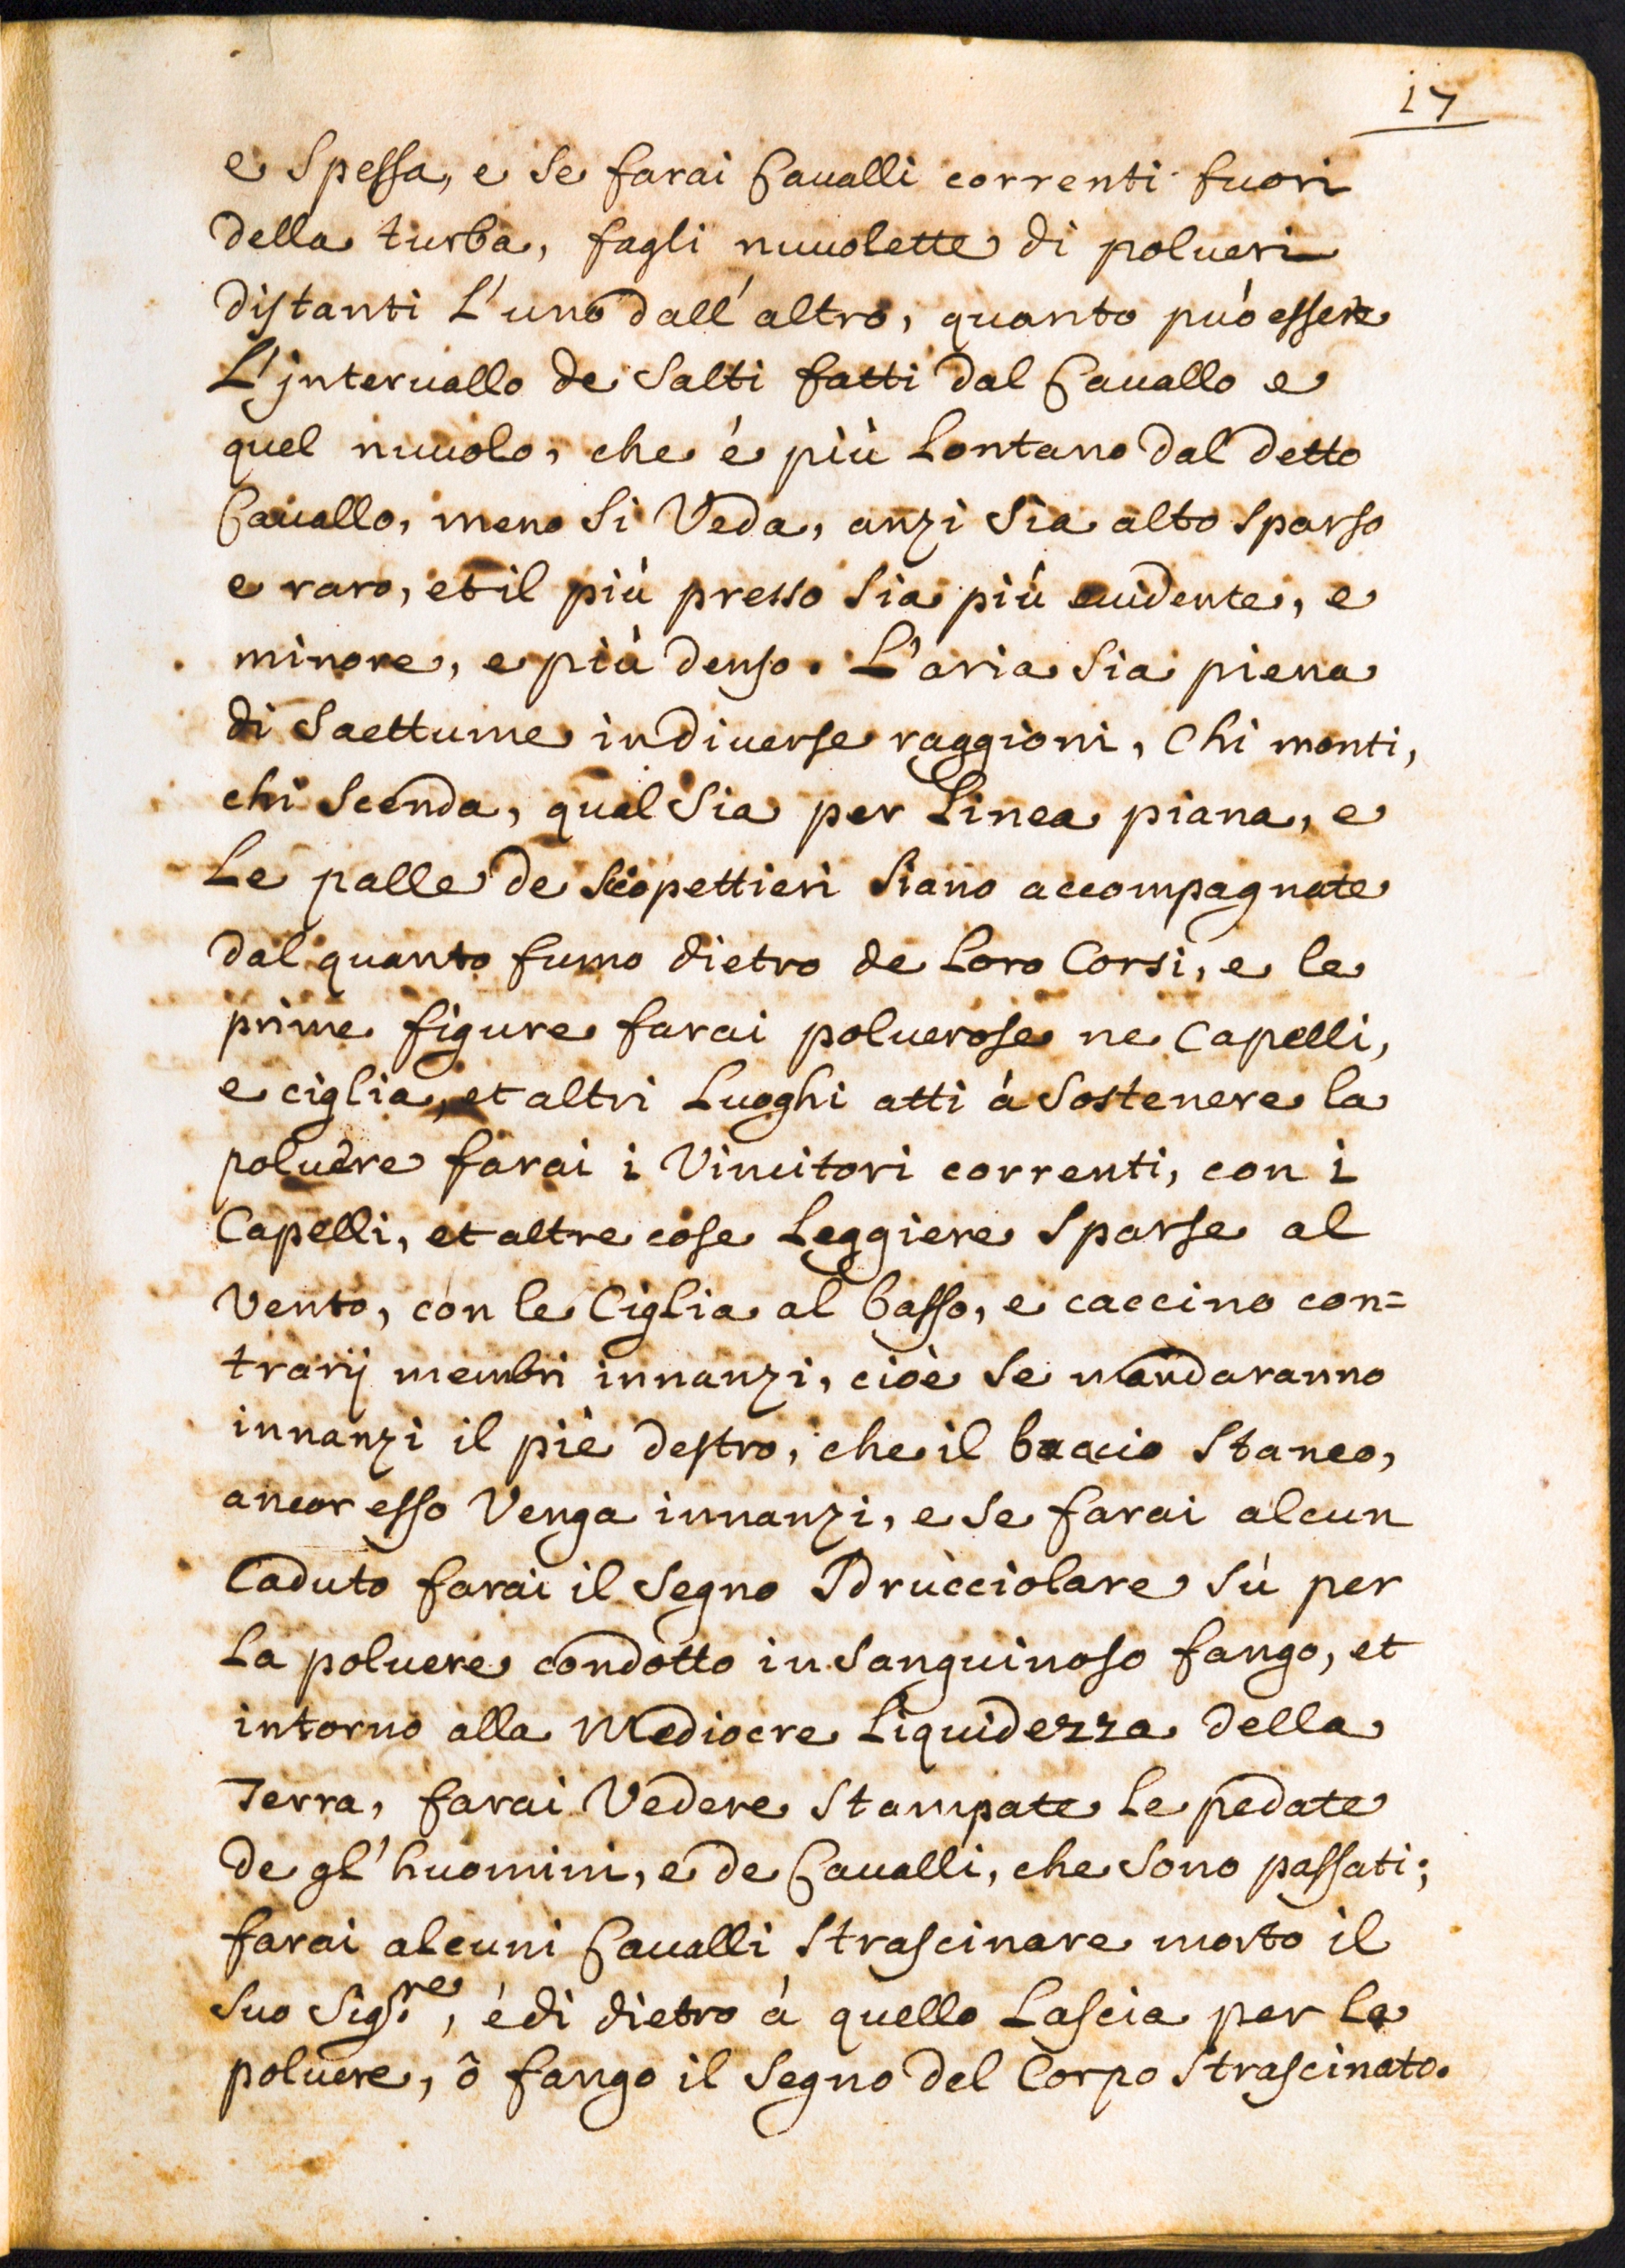 17
e Spessa, e se farai Cavalli correnti fuori
della turba, fagli nuuolette di polueri
distanti L'uno dall'altro, quanto può essere
L'jnteruallo de Salti fatti dal Cauallo e
quel nuuolo, che è più Lontano dal detto
Cauallo, meno si Veda, anzi sia alto sparso
e raro, et il più presso sia più euidente, e
minore, e più denso. L'aria sia piena
di Saettume in diuerse raggioni, Chi monti,
chi scenda, qual sia per Linea piana, e
Le palle de Scopettieri siano accompagnate
dal quanto fumo dietro de Loro Corsi, e le
prime figure farai poluerose ne Capelli,
e ciglia, et altri Luoghi atti à sostenere la
poluere farai i Vincitori correnti, con i
Capelli, et altre cose Leggiere sparse al
Vento, con le Ciglia al basso, e caccino con=
trarij membri innanzi, cioè se mandaranno
innanzi il piè destro, che il braccio stanco,
ancor esso Venga innanzi, e se farai alcun
Caduto farai il segno Sdrucciolare sù per
La poluere condotto in sanguinoso fango, et
intorno alla Mediocre Liquidezza della
Terra, farai Vedere stampate Le pedate
de gl'huomini, e de Caualli, che sono passati;
farai alcuni Caualli strascinare morto il
suo Sig.re, è di dietro à quello Lascia per la
poluere, ô fango il segno del Corpo strascinato.